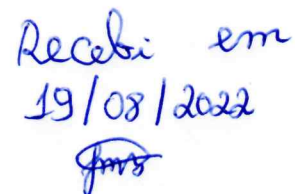 Recebi em
19/08/2022